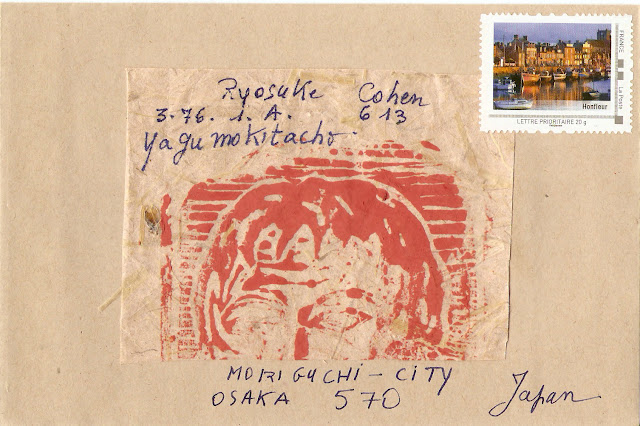 Ryosuke Cohen
3-76. 1. A. 613
Yagumokitacho.
MORIGUCHI-CITY
OSAKA 570
Japan
FRANCE
La Poste
Honfleur
LETTRE PRIORITAIRE 20 g